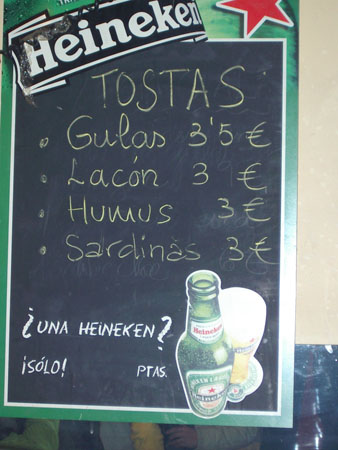 Heineken
TOSTAS
• Gulas 3'5 €
• Lacón 3 €
• Humus 3 €
• Sardinas 3 €
¿UNA HEINEKEN?
¡SÓLO! PTAS.
Heineken
Heineken